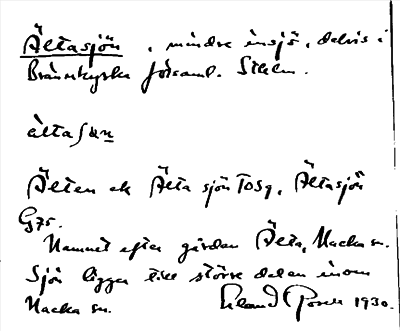 Ältasjön, mindre insjö, delvis i
Brännkyrka förs​aml. Sthlm.
älta ʃøn
Älten ek Älta sjön TOS9, Ältasjön
G75.
Namnet efter gården Älta, Nacka sn.
Sjön ligger till större delen inom
Nacka sn. Erland Rosell 1930.